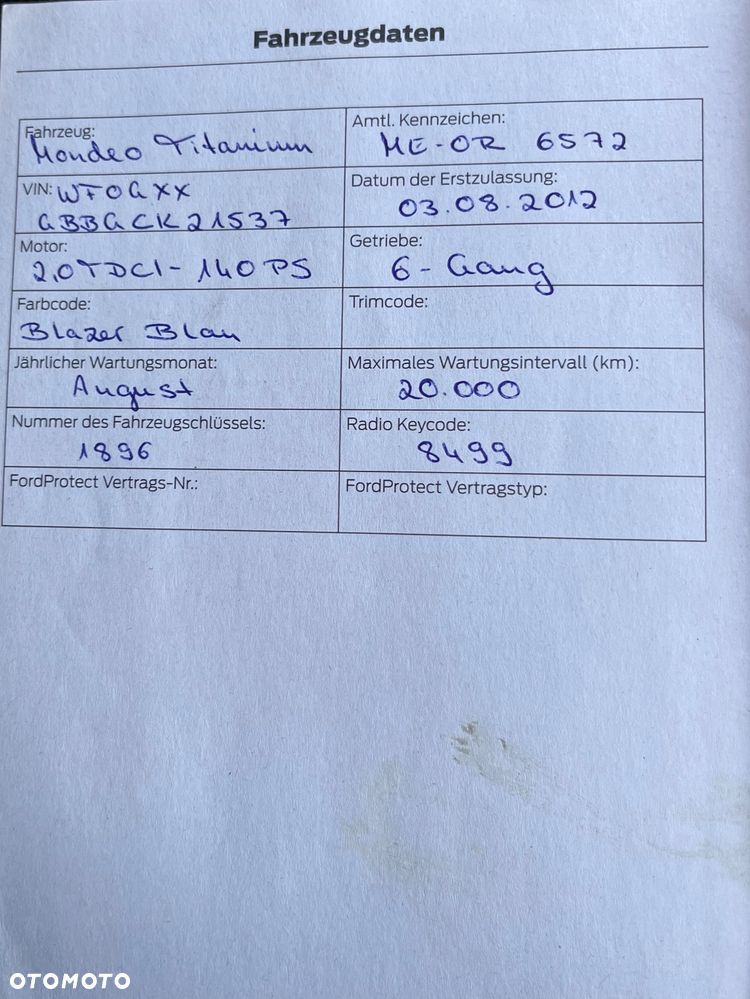 Fahrzeugdaten
Fahrzeug:
Mondeo Titanium
Amtl. Kennzeichen:
ME-OR 6572
VIN: WF0GXX
GBBGCK21537
Datum der Erstzulassung:
03.08.2012
Motor:
2,0TDCI - 140PS
Getriebe:
6-Gang
Farbcode:
Blazer Blau
Trimcode:
Jährlicher Wartungsmonat:
August
Maximales Wartungsintervall (km):
20.000
Nummer des Fahrzeugschlüssels:
1896
Radio Keycode:
8499
FordProtect Vertrags-Nr.:
FordProtect Vertragstyp:
OTOMOTO